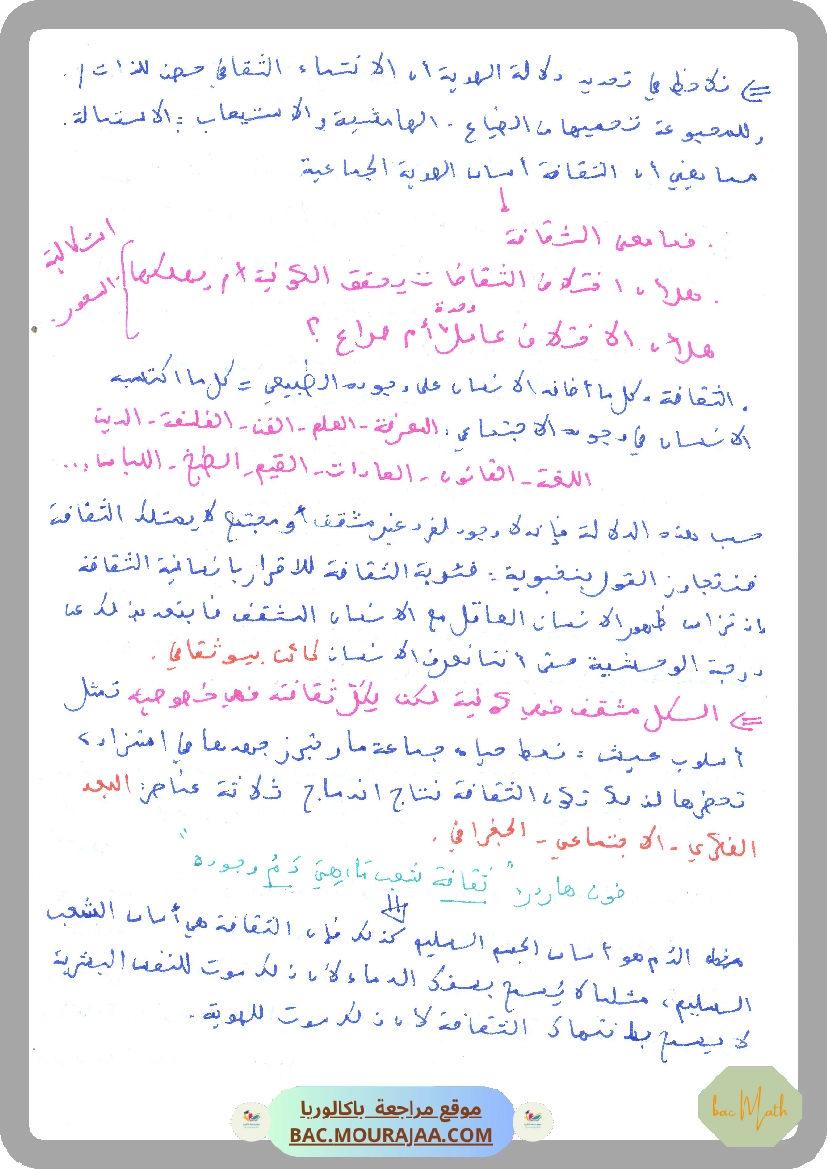 ⇐ نلاحظ في تحديد دلالة الهوية أن الانتماء الثقافي حصن للذات /
وللمجموعة تحميها من الضياع - الهامشية والاستيعاب : الاستمالة.
مما يعني أن الثقافة أساس الهوية الجماعية
↓
. فما معنى الثقافة
. هل أن اختلاف الثقافات يحقق الكونية أم يهددها
هل أن الاختلاف عامل وحدة أم صراع ؟
. الثقافة = كل ما أضافه الانسان على وجوده الطبيعي = كل ما اكتسبه
الانسان في وجوده الاجتماعي : المعرفة - العلم - الفن - الفلسفة - الدين
اللغة - القانون - العادات - القيم - الطبخ - اللباس ...
حسب هذه الدلالة فإنه لا وجود لفرد غير مثقف أو مجتمع لا يمتلك الثقافة
فنتجاوز القول بنخبوية : فئوية الثقافة للاقرار بانسانية الثقافة
ظهور الانسان العاقل مع الانسان المثقف فابتعد بذلك عن
درجة الوحشية حتى أننا نعرف الانسان كائن بيوثقافي .
⇐ الكل مثقف فهي كونية لكن لكلّ ثقافته فهي خصوصية تمثل
أسلوب عيش = نمط حياة جماعة ما
تحضرها لذلك تكون الثقافة نتاج اندماج ثلاثة عناصر : البعد
الفكري - الاجتماعي - الجغرافي .
فون هاردر " ثقافة شعب مَا، هِيَ دَمُ وجوده "
⇓
الدّم هو أساس الجسم السليم كذلك فإن الثقافة هي أساس الشعب
السليم، مثلما لا يُسمح بسفك الدماء لأن ذلك موت للنفس البشرية
لا يسمح بانتهاك الثقافة لأن ذلك موت للهوية .
موقع مراجعة باكالوريا
BAC.MOURAJAA.COM
bac Math